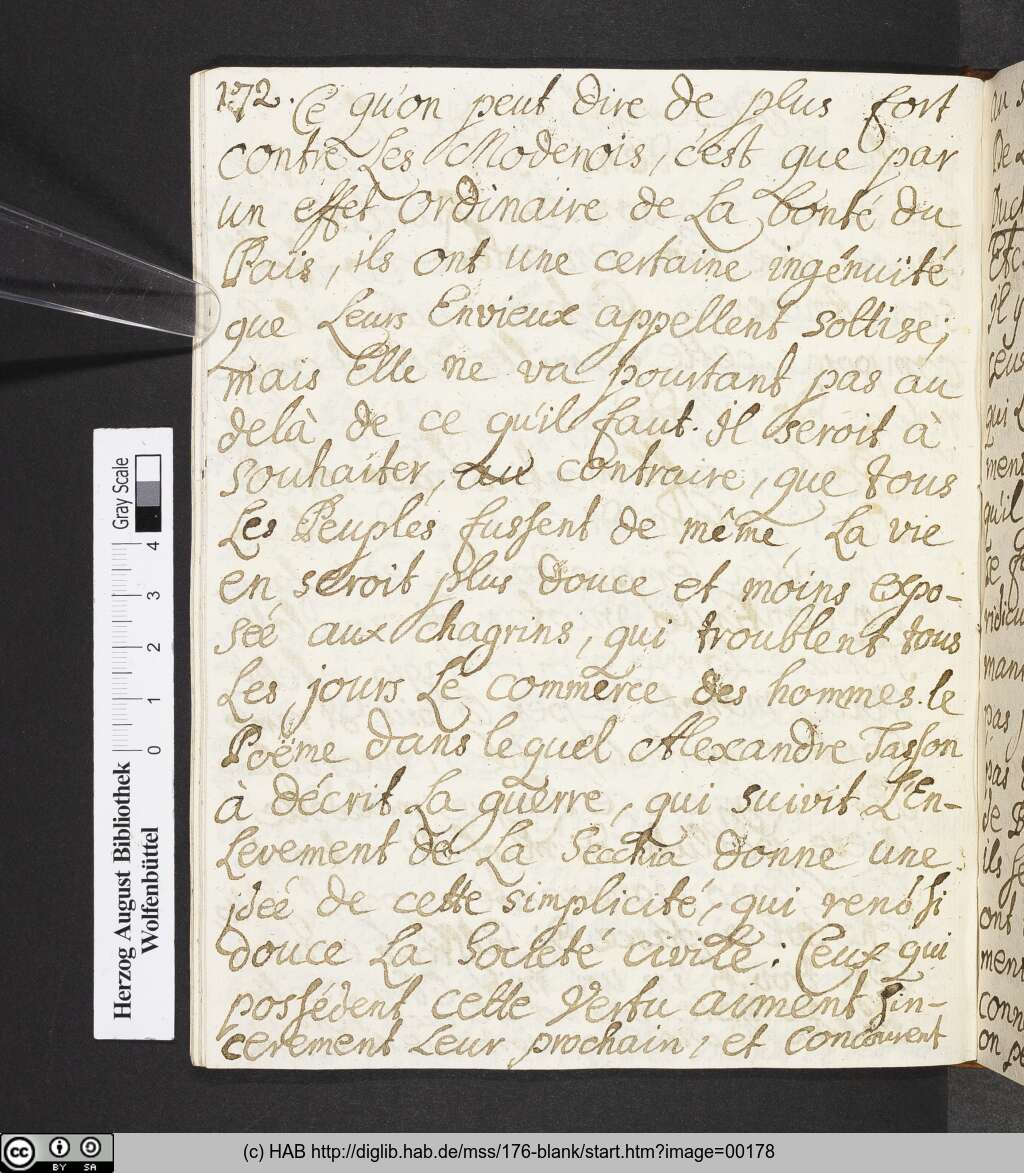 172. Ce qu'on peut dire de plus fort
contre Les Modenois, c'est que par
un effet Ordinaire de La bonté du
Païs, ils ont une certaine ingénuité
que Leurs Envieux appellent sottise;
mais Elle ne va pourtant pas au
delà de ce qu'il faut. Il seroit à
souhaiter, au contraire, que tous
Les Peuples fussent de même, La vie
en seroit plus douce et moins expo-
sée aux chagrins, qui troublent tous
Les jours Le commerce des hommes. le
Poëme dans lequel Alexandre Tasson
à décrit La guerre, qui suivit L'En-
Levement de La Secchia donne une
idée de cette simplicité, qui rend si
douce La Societé civile: Ceux qui
possédent cette Vertu aiment sin-
cerement Leur prochain, et concourent
Herzog August Bibliothek
Wolfenbüttel
0 1 2 3 4
Gray Scale
cc BY SA
(c) HAB http://diglib.hab.de/mss/176-blank/start.htm?image=00178